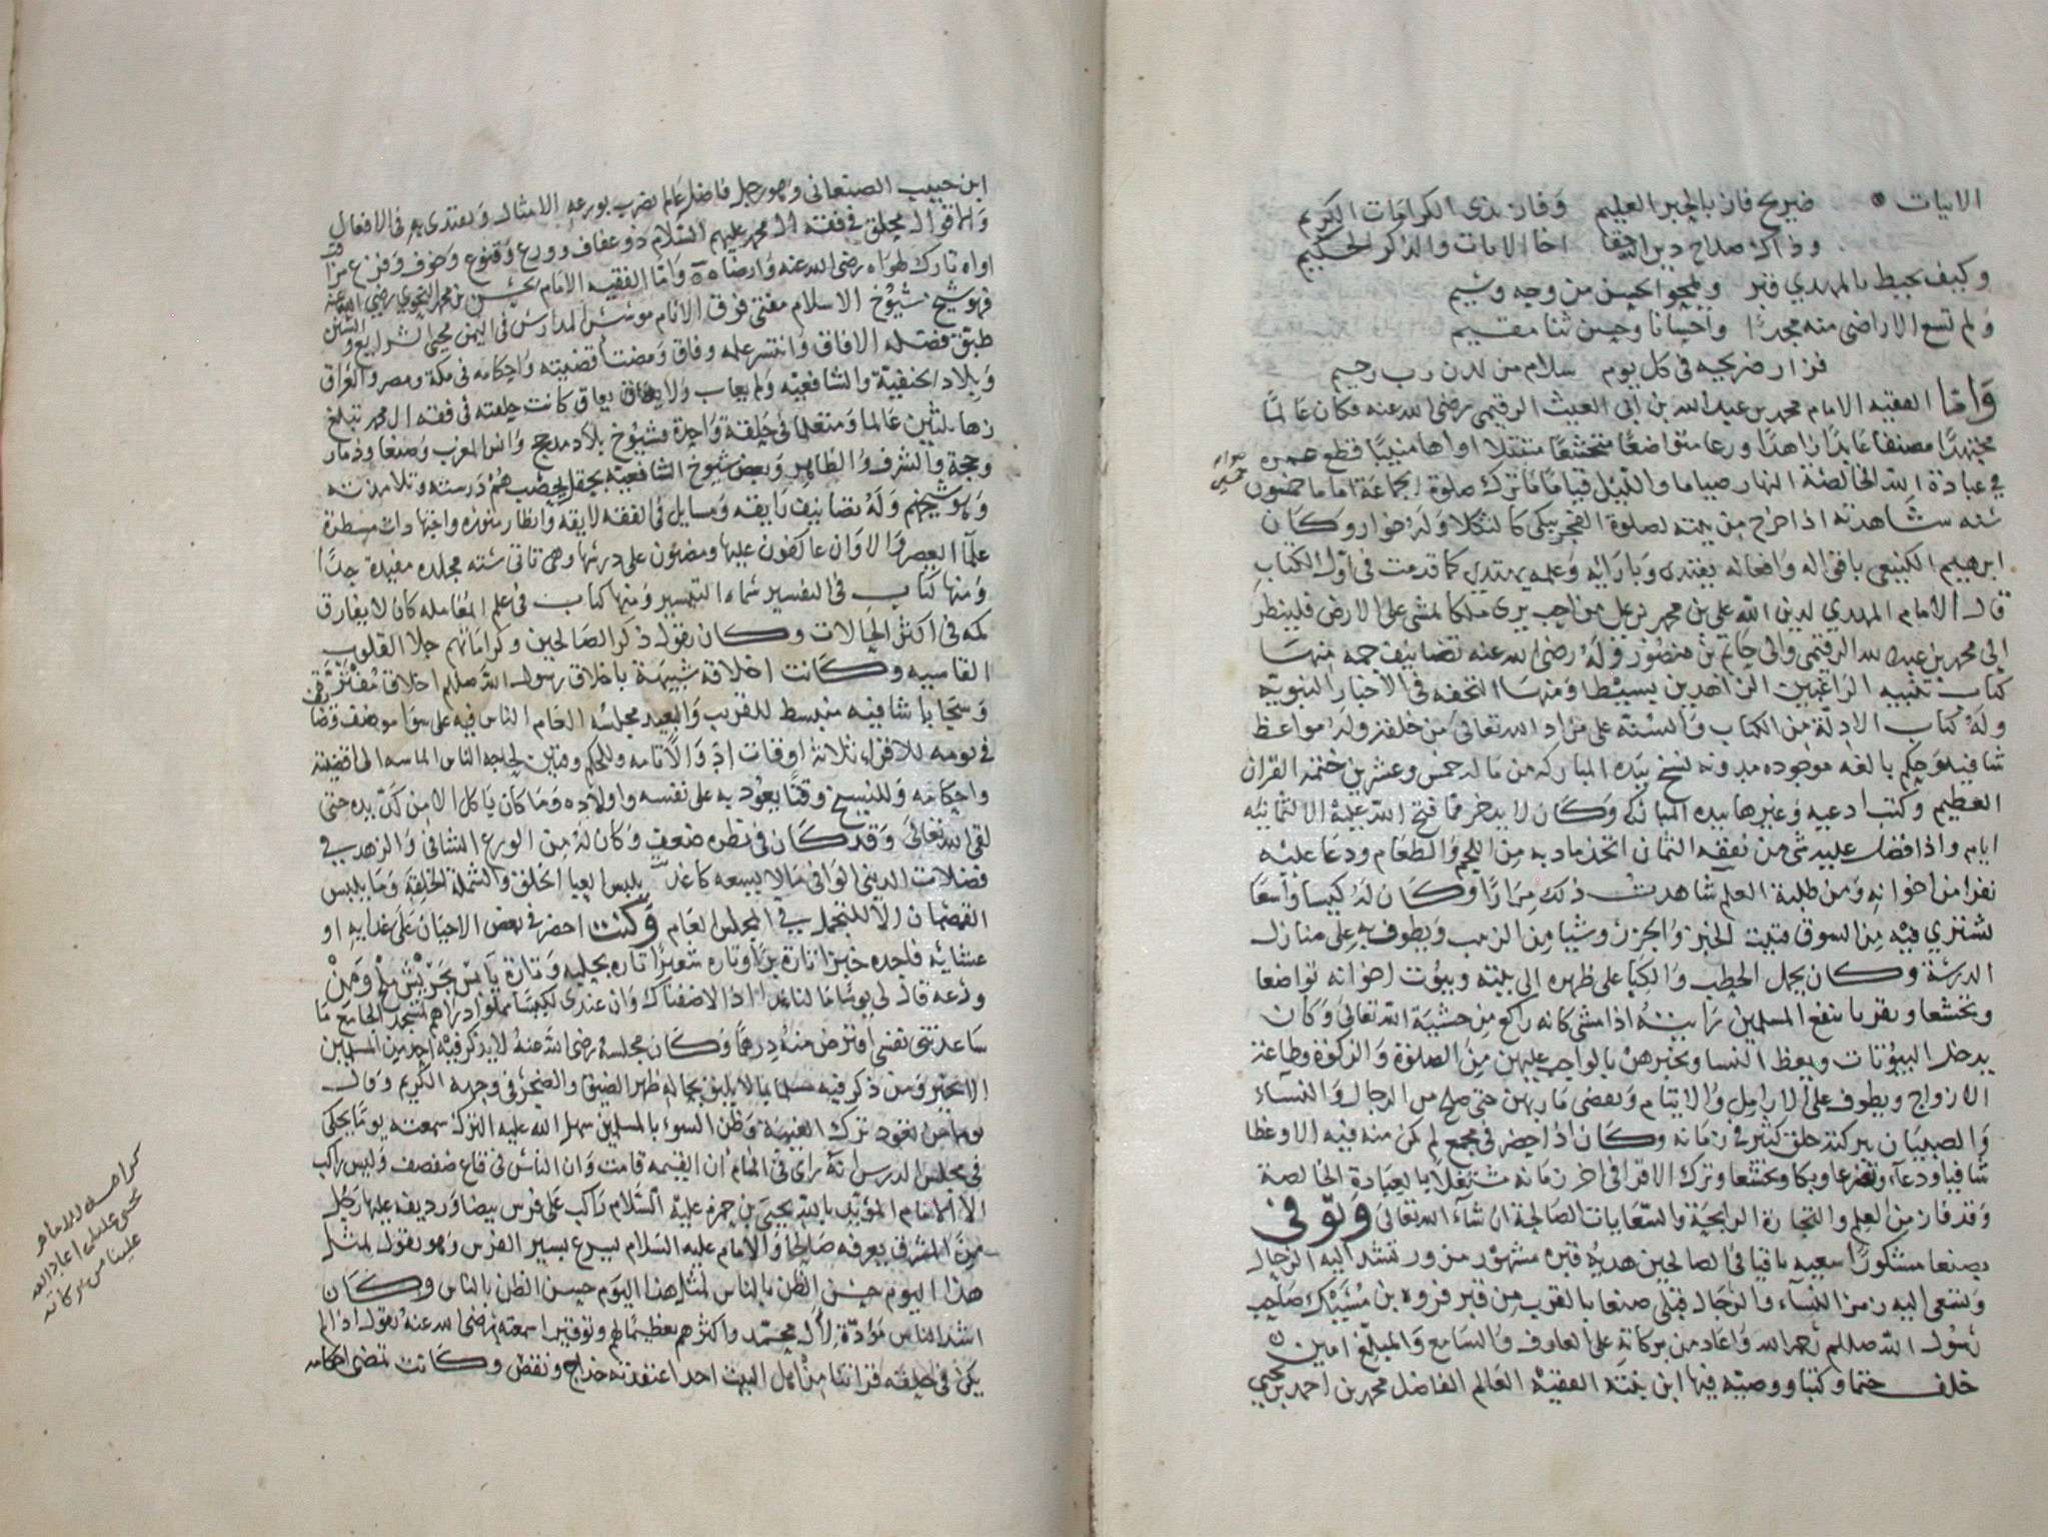 الابيات ضريح فاز بالحبر العليم وفاز بذي الكرامات الكريم
وذاك صلاح دين التقا اخا الايات والذكر الحكيم
وكيف يحيط بالمهدي قبر ويمحو الحسن من وجه وشيم
ولم تسع الاراضى منه مجدًا واحسانا وحسن ثنا مقيم
فزار ضريحه فى كل يوم سلام من لدن رب رحيم
وَامّا الفقيه الامام محمد بن عبد الله بن ابي الغيث الرقيمي رضى الله عنه فكان عالمًا
مجتهدًا مصنفا عابدًا زاهدًا ورعا متواضعًا متخشعًا متنقلا اواها منيبًا قطع عمره
في عبادة الله الخالصة النهار صياما والليل قيامًا ما ترك صلوة الجماعة اماما خمسون
سنه شاهدته اذا خرج من بيته لصلوة الفجر يبكي كالثكلا وله خوار وكان
ابرهيم الكينعي باقواله وافعاله يقتدى وبارائه وعلمه يهتدي كما قدمت فى اول الكتاب
قال الامام المهدي لدين الله على بن محمد من احب يرى ملكا يمشى على الارض فلينظر
الى محمد بن عبد الله الرقيمى والى حاتم بن منصور وله رضى الله عنه تصانيف جمه منها
كتاب تنبيه الراغبين الزاهدين بسيط ومنها التحفه فى الاخبار النبوية
وله كتاب الادلة من الكتاب والسنة على مراد الله تعالى من خلقه وله مواعظ
شافيه وحكم بالغه موجوده مدونه نسخ بيده المباركه من ماله خمس وعشرين ختمة القران
العظيم وكتب ادعيه وغيرها بيده المباركه وكان لا يدخر مما فتح الله عليه الا لثمانيه
ايام واذا فضل عليه شى من نفقه الثمان اتخذ مادبه من اللحم والطعام ودعا عليه
نفرا من اخوانه ومن طلبة العلم شاهدت ذلك مرارًا وكان له كيسا واسعًا
يشتري فيه من السوق قليل الخبز والجزر وشيا من الزبيب ويطوف به على منازل
الدرسة وكان يحمل الحطب والكبا على ظهره الى بيته وبيوت اخوانه تواضعا
وتخشعا وتقربا بنفع المسلمين رايته اذا مشى كانه راكع من خشية الله تعالى وكان
يدخل البيوتات ويعظ النسا ويخبرهن بالواجب عليهن من الصلوة والزكوة وطاعة
الازواج ويطوف على الارامل والايتام ويقضى ماربهن حتى صلح من الرجال والنساء
والصبيان ببركته خلق كثير في زمانه وكان اذا حضر في مجمع لم يكن منه فيه الا وعظا
شافيا ودعاء وتضرعا وبكا وتخشعا وترك الاقرا فى اخر زمانه مشتغلا بالعبادة الخالصة
وقد فاز من العلم والتجارة الرابحة والسعايات الصالحة ان شاء الله تعالى وتوفي
بصنعا مشكورًا سعيه باقيا فى الصالحين هديه قبره مشهور مزور تنشد اليه الرجال
وتسعى اليه زمر النساء والرجال قبلي صنعا بالقرب من قبر فروه بن مسيك صاحب
رسول الله صللم رحمه الله واعاد من بركاته على العارف والسامع والمبلغ امين
خلف ختما وكتبا ووصيه فيها ابن بنته الفقيه العالم الفاضل محمد بن احمد بن يحيى
ابن حبيب الصنعانى وهو رجل فاضل عالم يضرب بورعه الامثال ويقتدى به فى الافعال
والاقوال محلق فى فقه ال محمد عليهم السلام ذو عفاف وورع وقنوع وخوف وفزع
اواه تارك لهواه رضى الله عنه وارضاه واما الفقيه الامام حسن بن محمد النحوي رضى الله عنه
فهو شيخ شيوخ الاسلام مفتى فرق الانام موسس المدارس فى اليمن محيى الشرايع والسنن
طبق فضله الافاق وانتشر علمه وفاق ومضت اقضيته واحكامه فى مكة ومصر والعراق
وبلاد الحنفية والشافعيه ولم يعاب ولا يعاق كانت حلقته فى فقه ال محمد تبلغ
زها ثلثين عالما ومتعلما فى حلقة واحدة فشيوخ بلاد مدحج وانس المغرب وصنعا وذمار
وحجة والشرف والظاهر وبعض شيوخ الشافعية بحقل يحضب هم درسته وتلامذته
وهو شيخهم وله تصانيف رايقه ومسايل فى الفقه لايقه وانظار منوره واجتهادات مسطرة
علما العصر والاوان عاكفون عليها ومضئون على درسها وهى تاتى سته مجلده مفيدة جدًا
ومنها كتاب فى التفسير سماه التيسير ومنها كتاب فى علم المعامله كان لا يفارق
كمه فى اكثر الحالات وكان يقول ذكر الصالحين وكراماتهم جلا القلوب
القاسيه وكانت اخلاقه شبيهة باخلاق رسول الله صللم اخلاق
وسجايا شافيه منبسط للقريب والبعيد مجلسه العام الناس فيه على سوا
فى يومه للاقراء ثلاثة اوقات وللحكم وقتين لحاجه الناس الماسه الى اقضيته
واحكامه وللنسخ وقتًا يعود به على نفسه واولاده وما كان ياكل الا من كد يده حتى
لقى الله تعالى وقد كان فى نظره ضعف وكان له من الورع الشافى والزهد في
فضلات الدنيا الوافى مالا يسعه كاغد يلبس العبا الخلق والشملة الخلقة وما يلبس
القمصان الا للتجمل في المجلس العام وكنت احضر فى بعض الاحيان على غدايه او
عشايه فاجده خبزا تارة برًا وتاره شعيرًا تاره بحليه وتارة يابس بجريش ملح ومن
ورعه قال لي يومًا ما لنا غدا الا ضفناك وان عندي لكيسًا مملوا دراهم لمسجد الجامع ما
ساعدتنى نفسى اقترض منه درهما وكان مجلسه رضى الله عنه لا يذكر فيه احد من المسلمين
الا بخير ومن ذكر فيه مسلما بما لا يليق بحاله ظهر الضيق والضجر فى وجهه الكريم وقال
يوما من نعود ترك الغيبة وظن السوء بالمسلمين سهل الله عليه الترك سمعته يومًا يحكى
فى مجلس الدرس انه راى فى المنام ان القيمه قامت وان الناس فى قاع صفصف وليس راكب
الا الامام المؤيد بالله يحيى بن حمزه عليه السلام راكب على فرس بيضا ورديفه عليها رجل
من المشرق يعرفه صالحا والامام عليه السلام يسرع بسير الفرس وهو يقول لمثل
هذا اليوم حسن الظن بالناس لمثل هذا اليوم حسن الظن بالناس وكان
اشد الناس مودّة لال محمد واكثرهم تعظيمًا لهم وتوقيرا سمعته رضى الله عنه يقول اذا لم
يكن فى حلقه قرائتنا من اهل البيت احد اعتقدته خداج ونقص وكانت تمضى احكامه
كرامه للامام
يحيى عليلم اعاد الله
علينا من بركاته